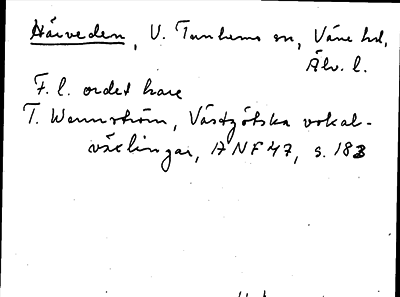 Härveden, V. Tunhems sn, Väne hd,
Älv. l.
F. l. ordet hare
T. Wennström, Västgötska vokal-
växlingar, ANF 47, s. 183